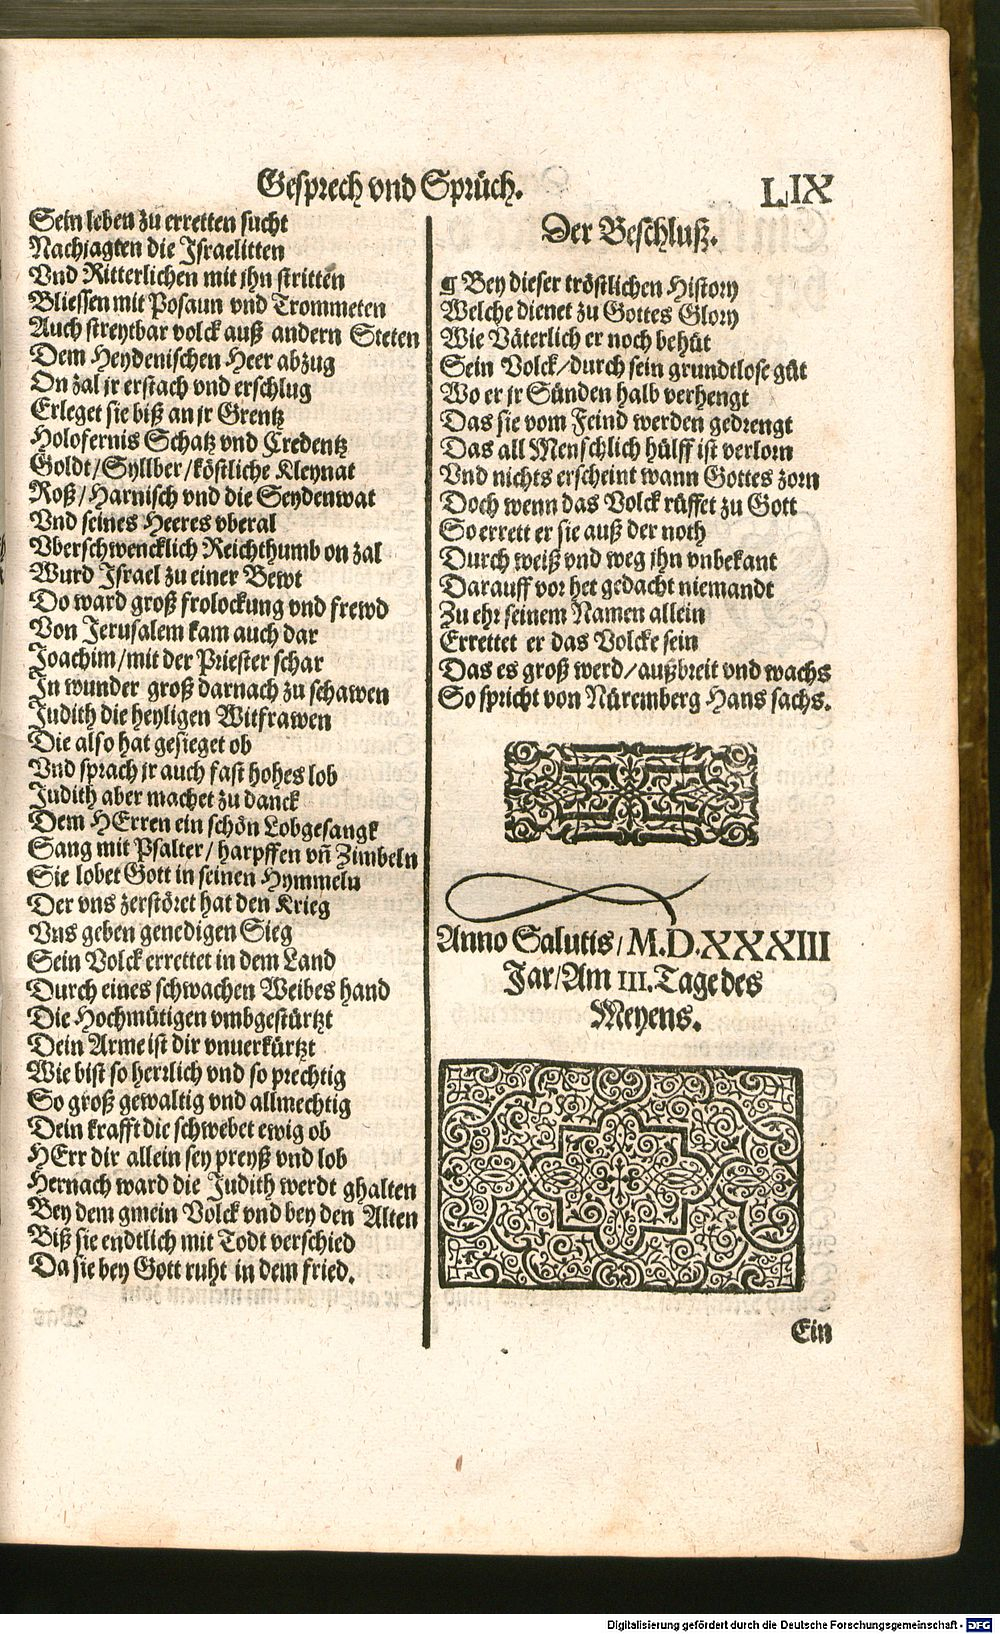 Gesprech vnd Sprüch.
LIX
Sein leben zu erretten sucht
Nachjagten die Israelitten
Vnd Ritterlichen mit ihn stritten
Bliessen mit Posaun vnd Trommeten
Auch streytbar volck auß andern Steten
Dem Heydenischen Heer abzug
On zal jr erstach vnd erschlug
Erleget sie biß an jr Grentz
Holofernis Schatz vnd Credentz
Goldt/Syllber/köstliche Kleynat
Roß/Harnisch vnd die Seydenwat
Vnd seines Heeres vberal
Vberschwencklich Reichthumb on zal
Wurd Israel zu einer Bewt
Do ward groß frolockung vnd frewd
Von Jerusalem kam auch dar
Joachim/mit der Priester schar
In wunder groß darnach zu schawen
Judith die heyligen Witfrawen
Die also hat gesieget ob
Vnd sprach jr auch fast hohes lob
Judith aber machet zu danck
Dem HErren ein schön Lobgesangk
Sang mit Psalter/harpffen vñ Zimbeln
Sie lobet Gott in seinen Hymmeln
Der vns zerstöret hat den Krieg
Vns geben genedigen Sieg
Sein Volck errettet in dem Land
Durch eines schwachen Weibes hand
Die Hochmütigen vmbgestürtzt
Dein Arme ist dir vnuerkürtzt
Wie bist so herrlich vnd so prechtig
So groß gewaltig vnd allmechtig
Dein krafft die schwebet ewig ob
HErr dir allein sey preyß vnd lob
Hernach ward die Judith werdt ghalten
Bey dem gmein Volck vnd bey den Alten
Biß sie endtlich mit Todt verschied
Da sie bey Gott ruht in dem fried.
Der Beschluß.
¶ Bey dieser tröstlichen History
Welche dienet zu Gottes Glory
Wie Väterlich er noch behüt
Sein Volck/durch sein grundtlose güt
Wo er jr Sünden halb verhengt
Das sie vom Feind werden gedrengt
Das all Menschlich hülff ist verlorn
Vnd nichts erscheint wann Gottes zorn
Doch wenn das Volck rüffet zu Gott
So errett er sie auß der noth
Durch weiß vnd weg ihn vnbekant
Darauff vor het gedacht niemandt
Zu ehr seinem Namen allein
Errettet er das Volcke sein
Das es groß werd/außbreit vnd wachs
So spricht von Nüremberg Hans sachs.
Anno Salutis/M.D.XXXIII
Jar/Am III. Tage des
Meyens.
Ein
Digitalisierung gefördert durch die Deutsche Forschungsgemeinschaft - DFG